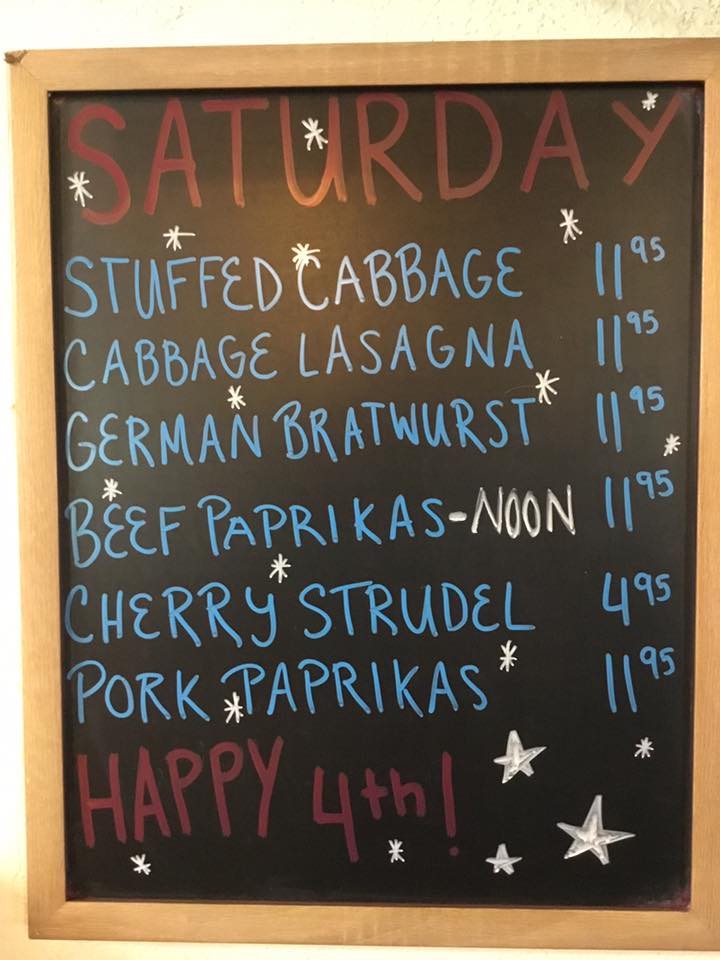 SATURDAY
STUFFED CABBAGE 11 95
CABBAGE LASAGNA 11 95
GERMAN BRATWURST 11 95
BEEF PAPRIKAS-NOON 11 95
CHERRY STRUDEL 4 95
PORK PAPRIKAS 11 95
HAPPY 4th!